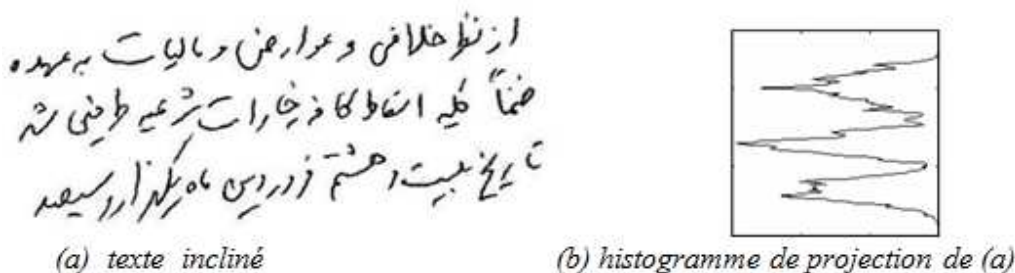 از نظر خلافی و عوارض و مالیات به عهده
ضمناً کلیه اسقاط کافه خیارات شرعیه طرفین شد
تاریخ بیست و هشتم فروردین ماه یکهزار و سیصد
(a) texte incliné
(b) histogramme de projection de (a)